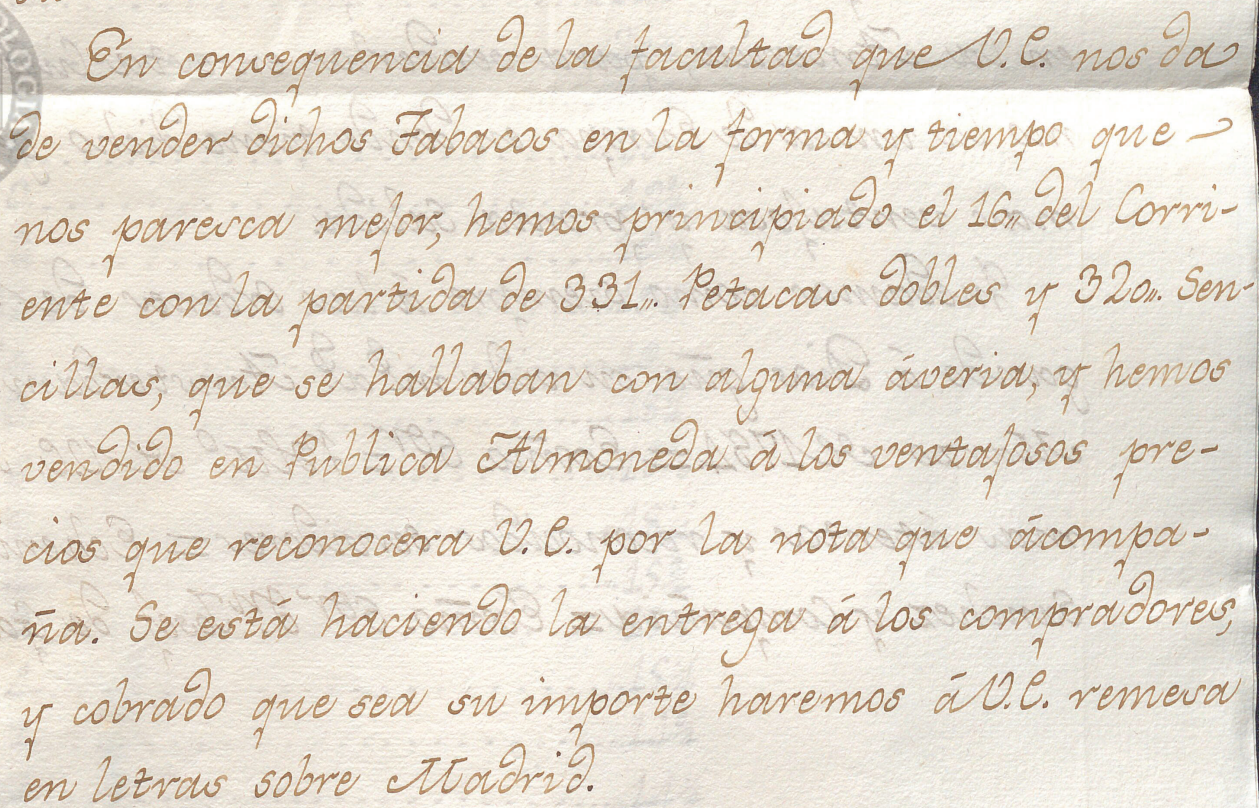 En consequencia de la facultad que V.E. nos da
de vender dichos Tabacos en la forma y tiempo que
nos paresca mejor, hemos principiado el 16,, del Corri-
ente con la partida de 331,,. Petacas dobles y 320,,. Sen-
cillas, que se hallaban con alguna áveria, y hemos
vendido en Publica Almoneda á los ventajosos pre-
cios que reconocera V.E. por la nota que ácompa-
ña. Se está haciendo la entrega á los compradores,
y cobrado que sea su importe haremos á V.E. remesa
en letras sobre Madrid.